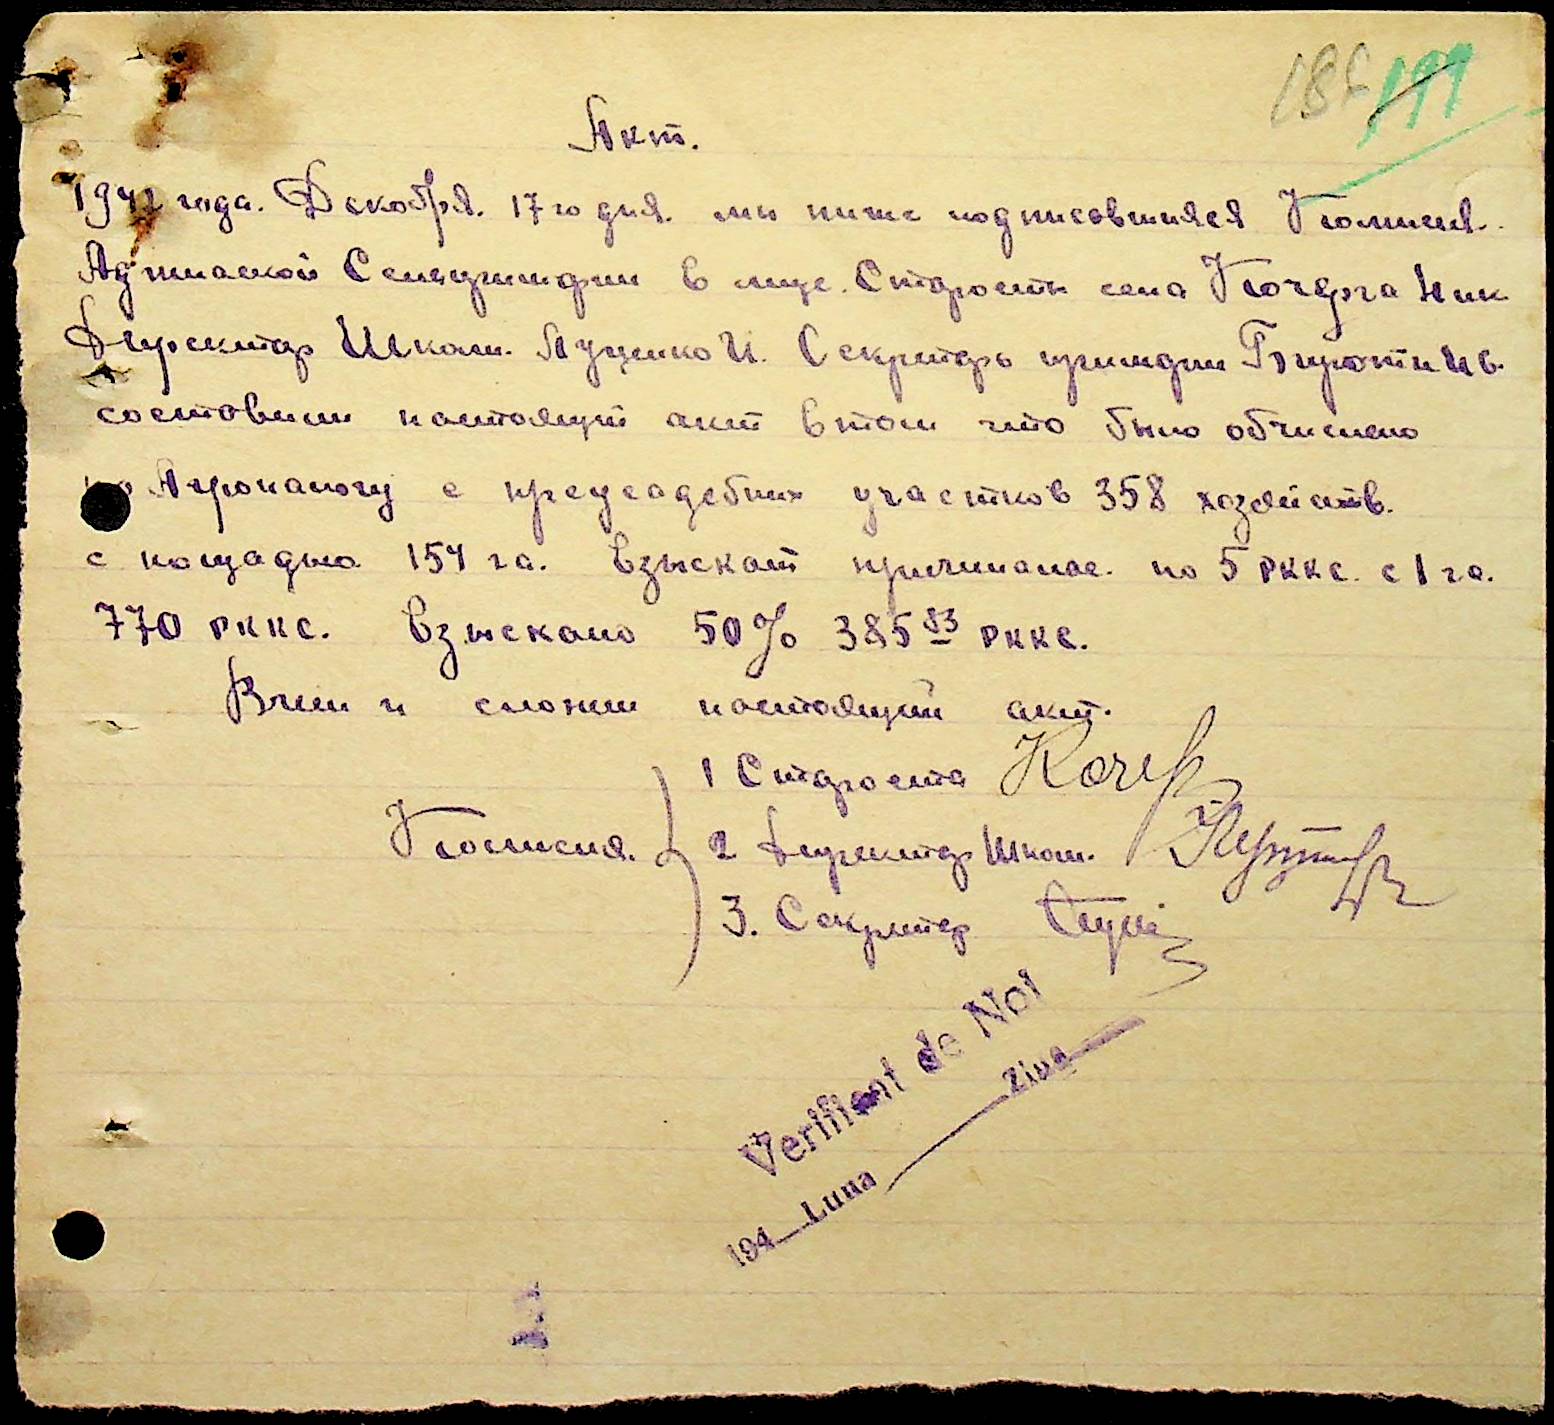 187 199
Акт.
1942 года. Декабря. 17 го дня. мы ниже подписавшияся Комисия.
Аджиаской Сельпримарии в лице. Старосты села Кочерга Ник
Директор Школы. Луценко И. Секретарь примарии
составили настоящий акт в том что было обчислено
по Агроналогу с предусадебных участков 358 хозяйств.
с пощадью 154 га. Взыскат причиталос. по 5 РККС. с 1 га.
770 РККС. Взыскано 50% 385 РККС.
В чем и сложили настоящий акт.
1 Староста Кочер
Комисия. 2 Директор Школы.
3. Секретар
Verificat de Noi
194 Luna Ziua